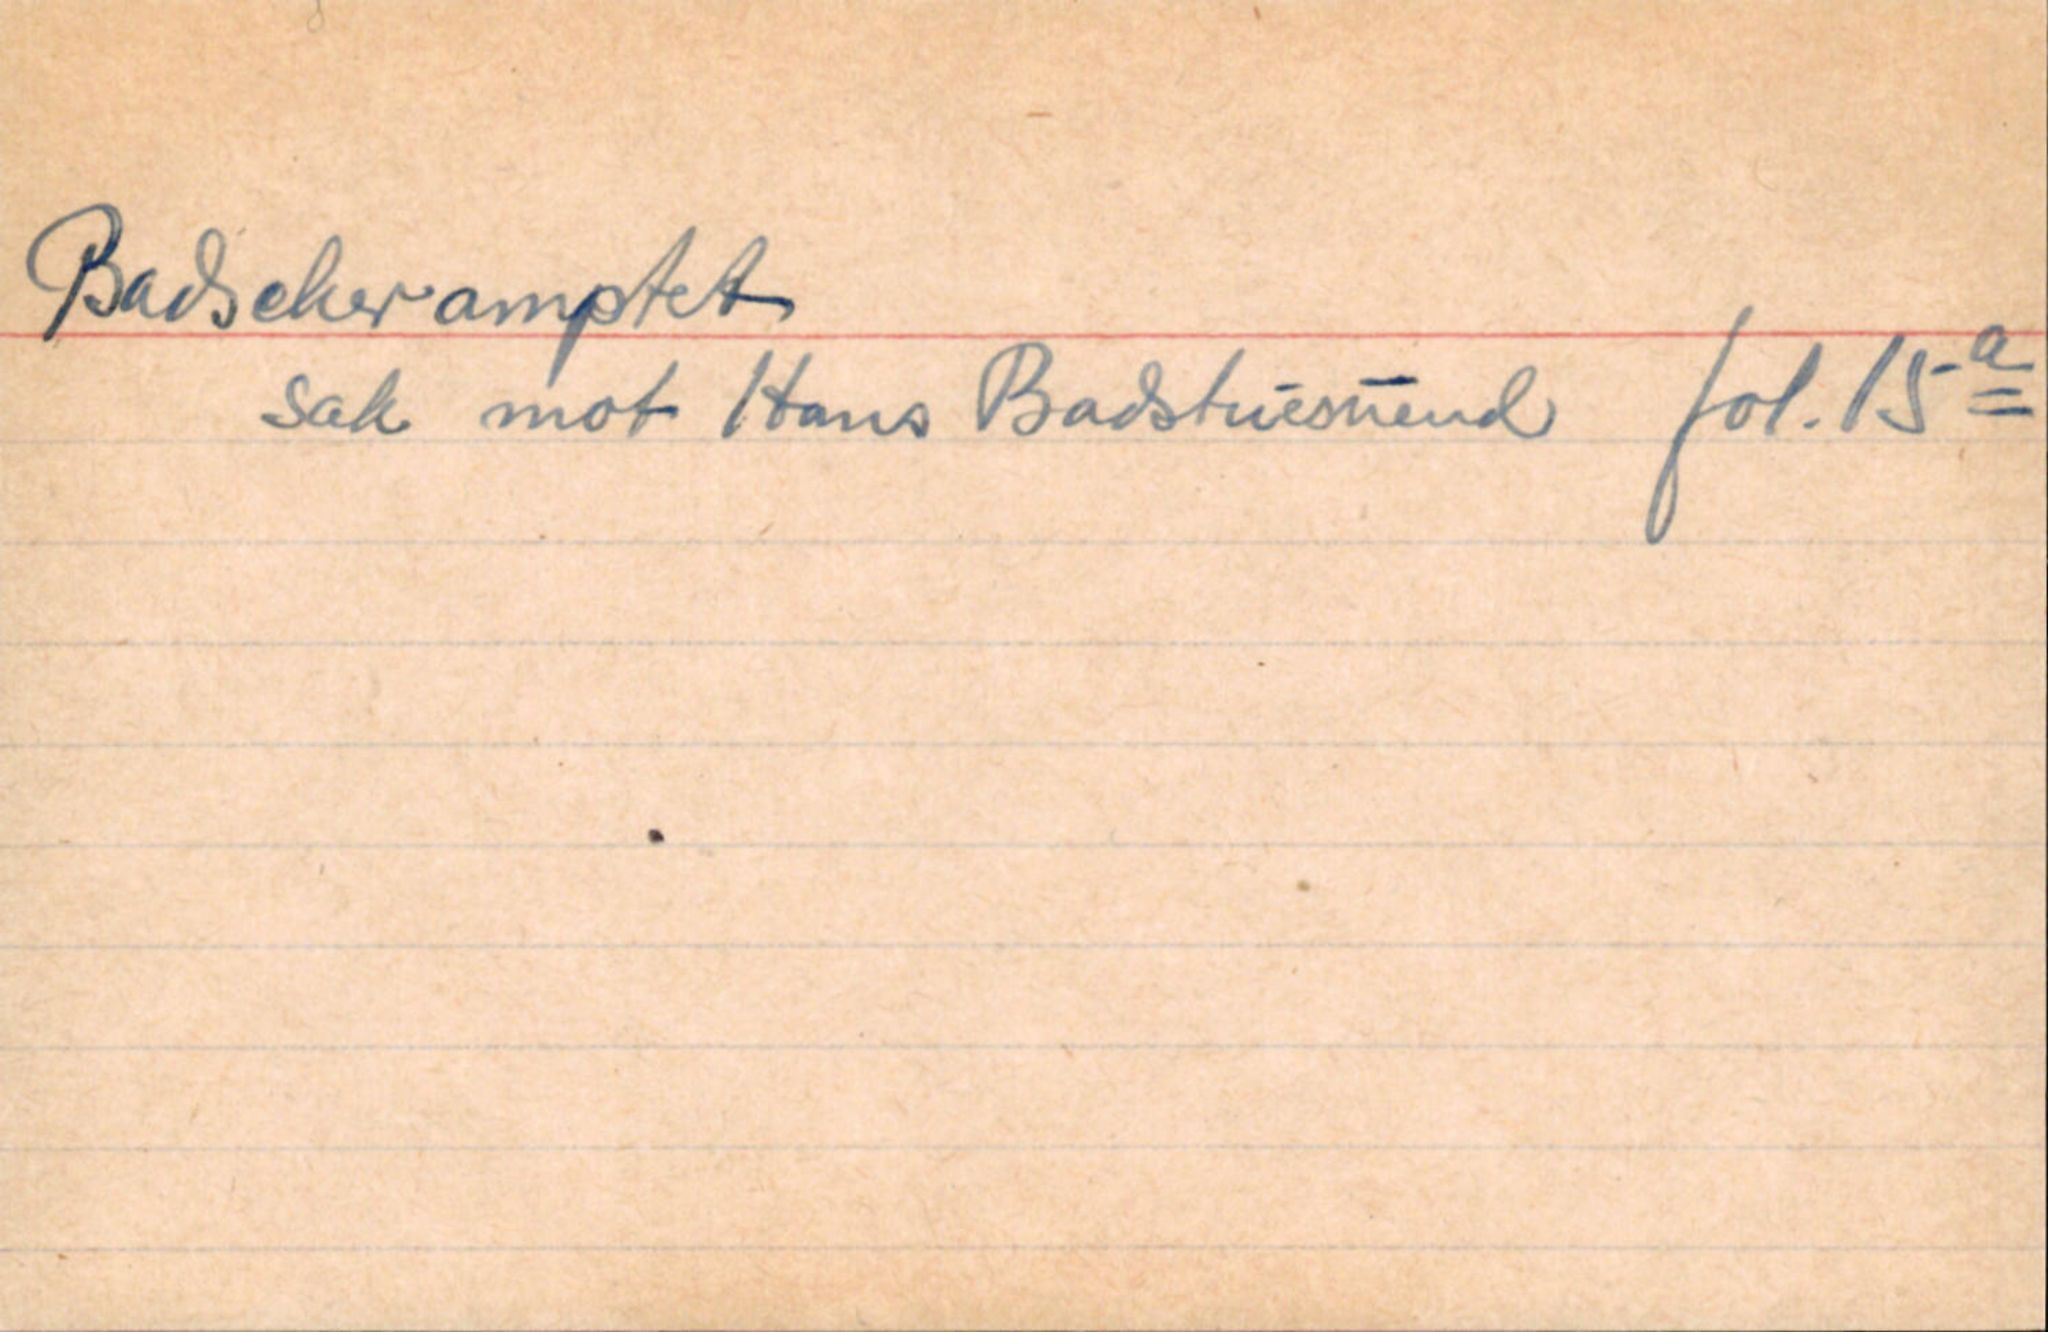 Badscheramptet
sak mot Hans Badstuesuend fol. 15 a